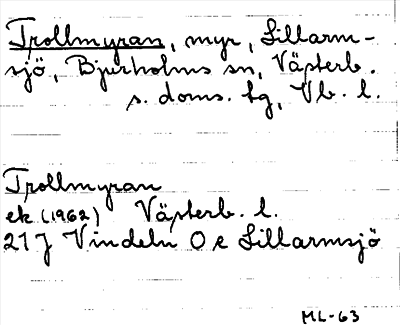 Trollmyran, myr, Lillarm-
sjö, Bjurholms sn, Västerb.
s. doms. tg, Vb. l.
Trollmyran
ek (1962) Västerb. l.
21 J Vindeln O e Lillarmsjö
ML-63